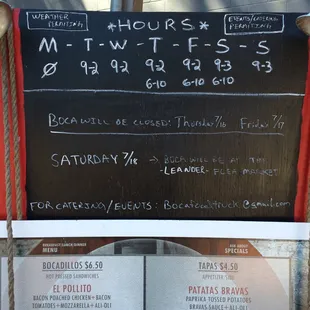 WEATHER PERMITTING
*HOURS*
EVENTS/CATERING PERMITTING
M-T-W-T-F-S-S
Ø 9-2 9-2 9-2 9-2 9-3 9-3
6-10 6-10 6-10
BOCA WILL BE CLOSED: Thursday 7/16 Friday 7/17
SATURDAY 7/18 → BOCA WILL BE AT THE
-LEANDER- FLEA MARKET
FOR CATERING/EVENTS: Bocafoodtruck@gmail.com
BREAKFAST/LUNCH/DINNER
MENU
ASK ABOUT
SPECIALS
BOCADILLOS $6.50
HOT PRESSED SANDWICHES
EL POLLITO
BACON POACHED CHICKEN + BACON
TOMATOES + MOZZARELLA + ALI-OLI
TAPAS $4.50
APPETIZER SIZE
PATATAS BRAVAS
PAPRIKA TOSSED POTATOES
BRAVAS SAUCE + ALI-OLI